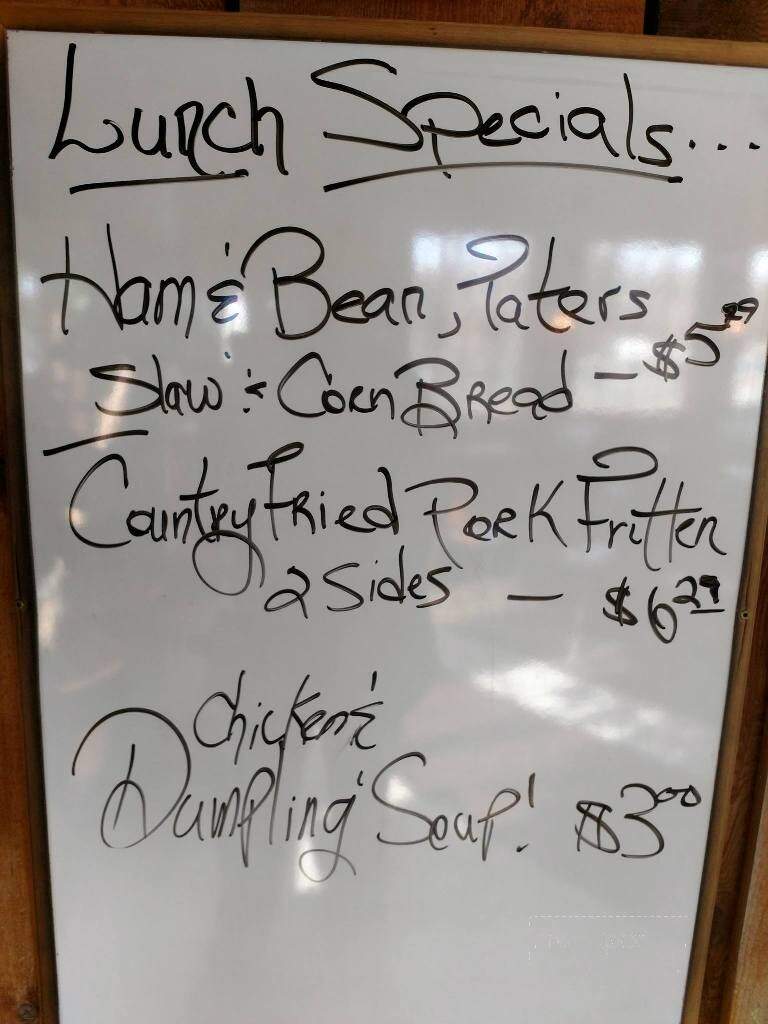 Lunch Specials...
Ham & Bean, Taters
Slaw & Corn Bread - $5.29
Country Fried Pork Fritter
2 Sides - $6.29
Chicken &
Dumpling Soup! $3.00